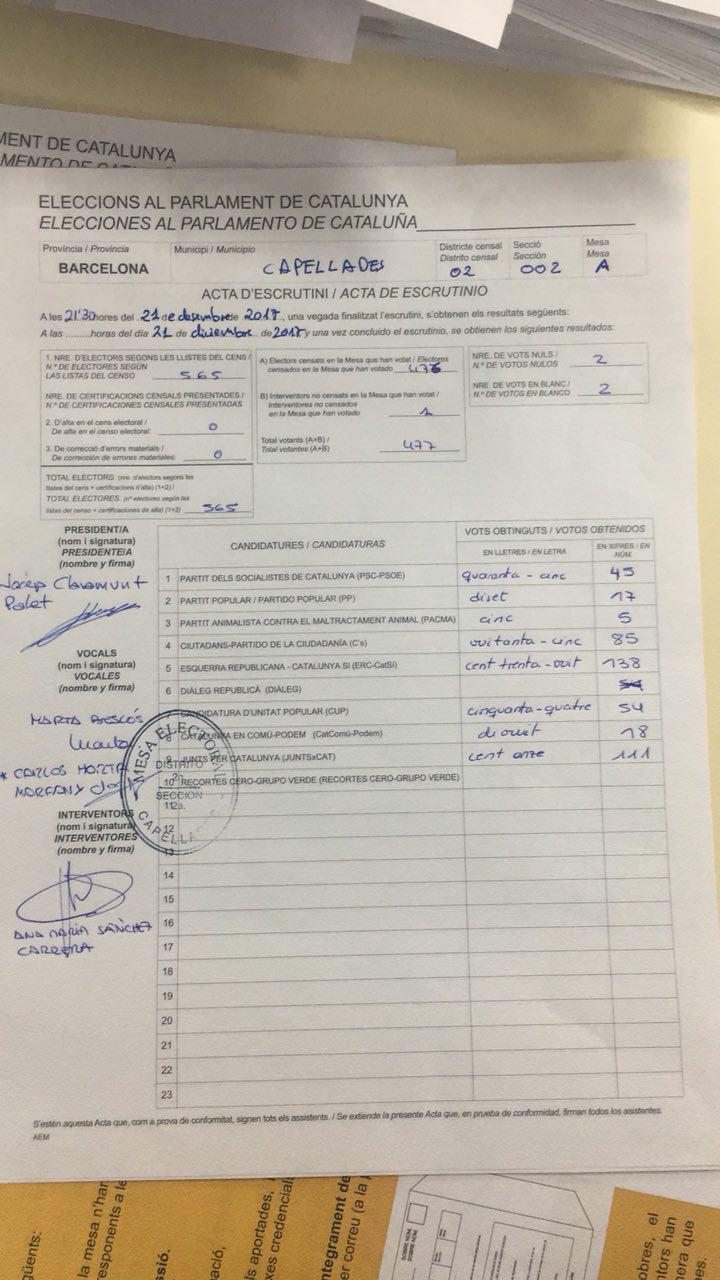 MENT DE CATALUNYA
AMENTO DE CATA
ELECCIONS AL PARLAMENT DE CATALUNYA
ELECCIONES AL PARLAMENTO DE CATALUÑA
Província / Provincia
BARCELONA
Municipi / Municipio
CAPELLADES
Districte censal
Distrito censal
02
Secció
Sección
002
Mesa
Mesa
A
ACTA D'ESCRUTINI / ACTA DE ESCRUTINIO
A les 21'30 hores del 21 de desembre de 2017, una vegada finalitzat l'escrutini, s'obtenen els resultats següents:
A las .........horas del día 21 de diciembre de 2017 y una vez concluido el escrutinio, se obtienen los siguientes resultados:
1. NRE. D'ELECTORS SEGONS LES LLISTES DEL CENS /
N.º DE ELECTORES SEGÚN
LAS LISTAS DEL CENSO 565
NRE. DE CERTIFICACIONS CENSALS PRESENTADES /
N.º DE CERTIFICACIONES CENSALES PRESENTADAS
2. D'alta en el cens electoral /
De alta en el censo electoral: 0
3. De correcció d'errors materials /
De corrección de errores materiales: 0
TOTAL ELECTORS: (nre. d'electors segons les
llistes del cens + certificacions d'alta) (1+2) /
TOTAL ELECTORES: (nº electores según las
listas del censo + certificaciones de alta) (1+2) 565
A) Electors censats en la Mesa que han votat / Electores
censados en la Mesa que han votado 476
B) Interventors no censats en la Mesa que han votat /
Interventores no censados
en la Mesa que han votado 1
Total votants (A+B) /
Total votantes (A+B) 477
NRE. DE VOTS NULS /
N.º DE VOTOS NULOS 2
NRE. DE VOTS EN BLANC /
N.º DE VOTOS EN BLANCO 2
PRESIDENT/A
(nom i signatura)
PRESIDENTE/A
(nombre y firma)
Josep Claramunt
Polet
VOCALS
(nom i signatura)
VOCALES
(nombre y firma)
MARTA
Marta
* CARLOS HORTA
MARFANY
INTERVENTORS
(nom i signatura)
INTERVENTORES
(nombre y firma)
ANA MARIA SÁNCHEZ
CARRERA
MESA ELECTORAL
DISTRITO
2n
SECCION
2a.
CAPELL
CANDIDATURES / CANDIDATURAS
VOTS OBTINGUTS / VOTOS OBTENIDOS
EN LLETRES / EN LETRA
EN XIFRES / EN NÚM.
1 PARTIT DELS SOCIALISTES DE CATALUNYA (PSC-PSOE) quaranta-cinc 45
2 PARTIT POPULAR / PARTIDO POPULAR (PP) diset 17
3 PARTIT ANIMALISTA CONTRA EL MALTRACTAMENT ANIMAL (PACMA) cinc 5
4 CIUTADANS-PARTIDO DE LA CIUDADANÍA (C's) vuitanta-cinc 85
5 ESQUERRA REPUBLICANA - CATALUNYA SÍ (ERC-CatSí) cent trenta-vuit 138
6 DIÀLEG REPUBLICÀ (DIÀLEG)
7 CANDIDATURA D'UNITAT POPULAR (CUP) cinquanta-quatre 54
8 CATALUNYA EN COMÚ-PODEM (CatComú-Podem) diouit 18
9 JUNTS PER CATALUNYA (JUNTSxCAT) cent onze 111
10 RECORTES CERO-GRUPO VERDE (RECORTES CERO-GRUPO VERDE)
11
12
13
14
15
16
17
18
19
20
21
22
23
S'estén aquesta Acta que, com a prova de conformitat, signen tots els assistents. / Se extiende la presente Acta que, en prueba de conformidad, firman todos los asistentes.
AEM